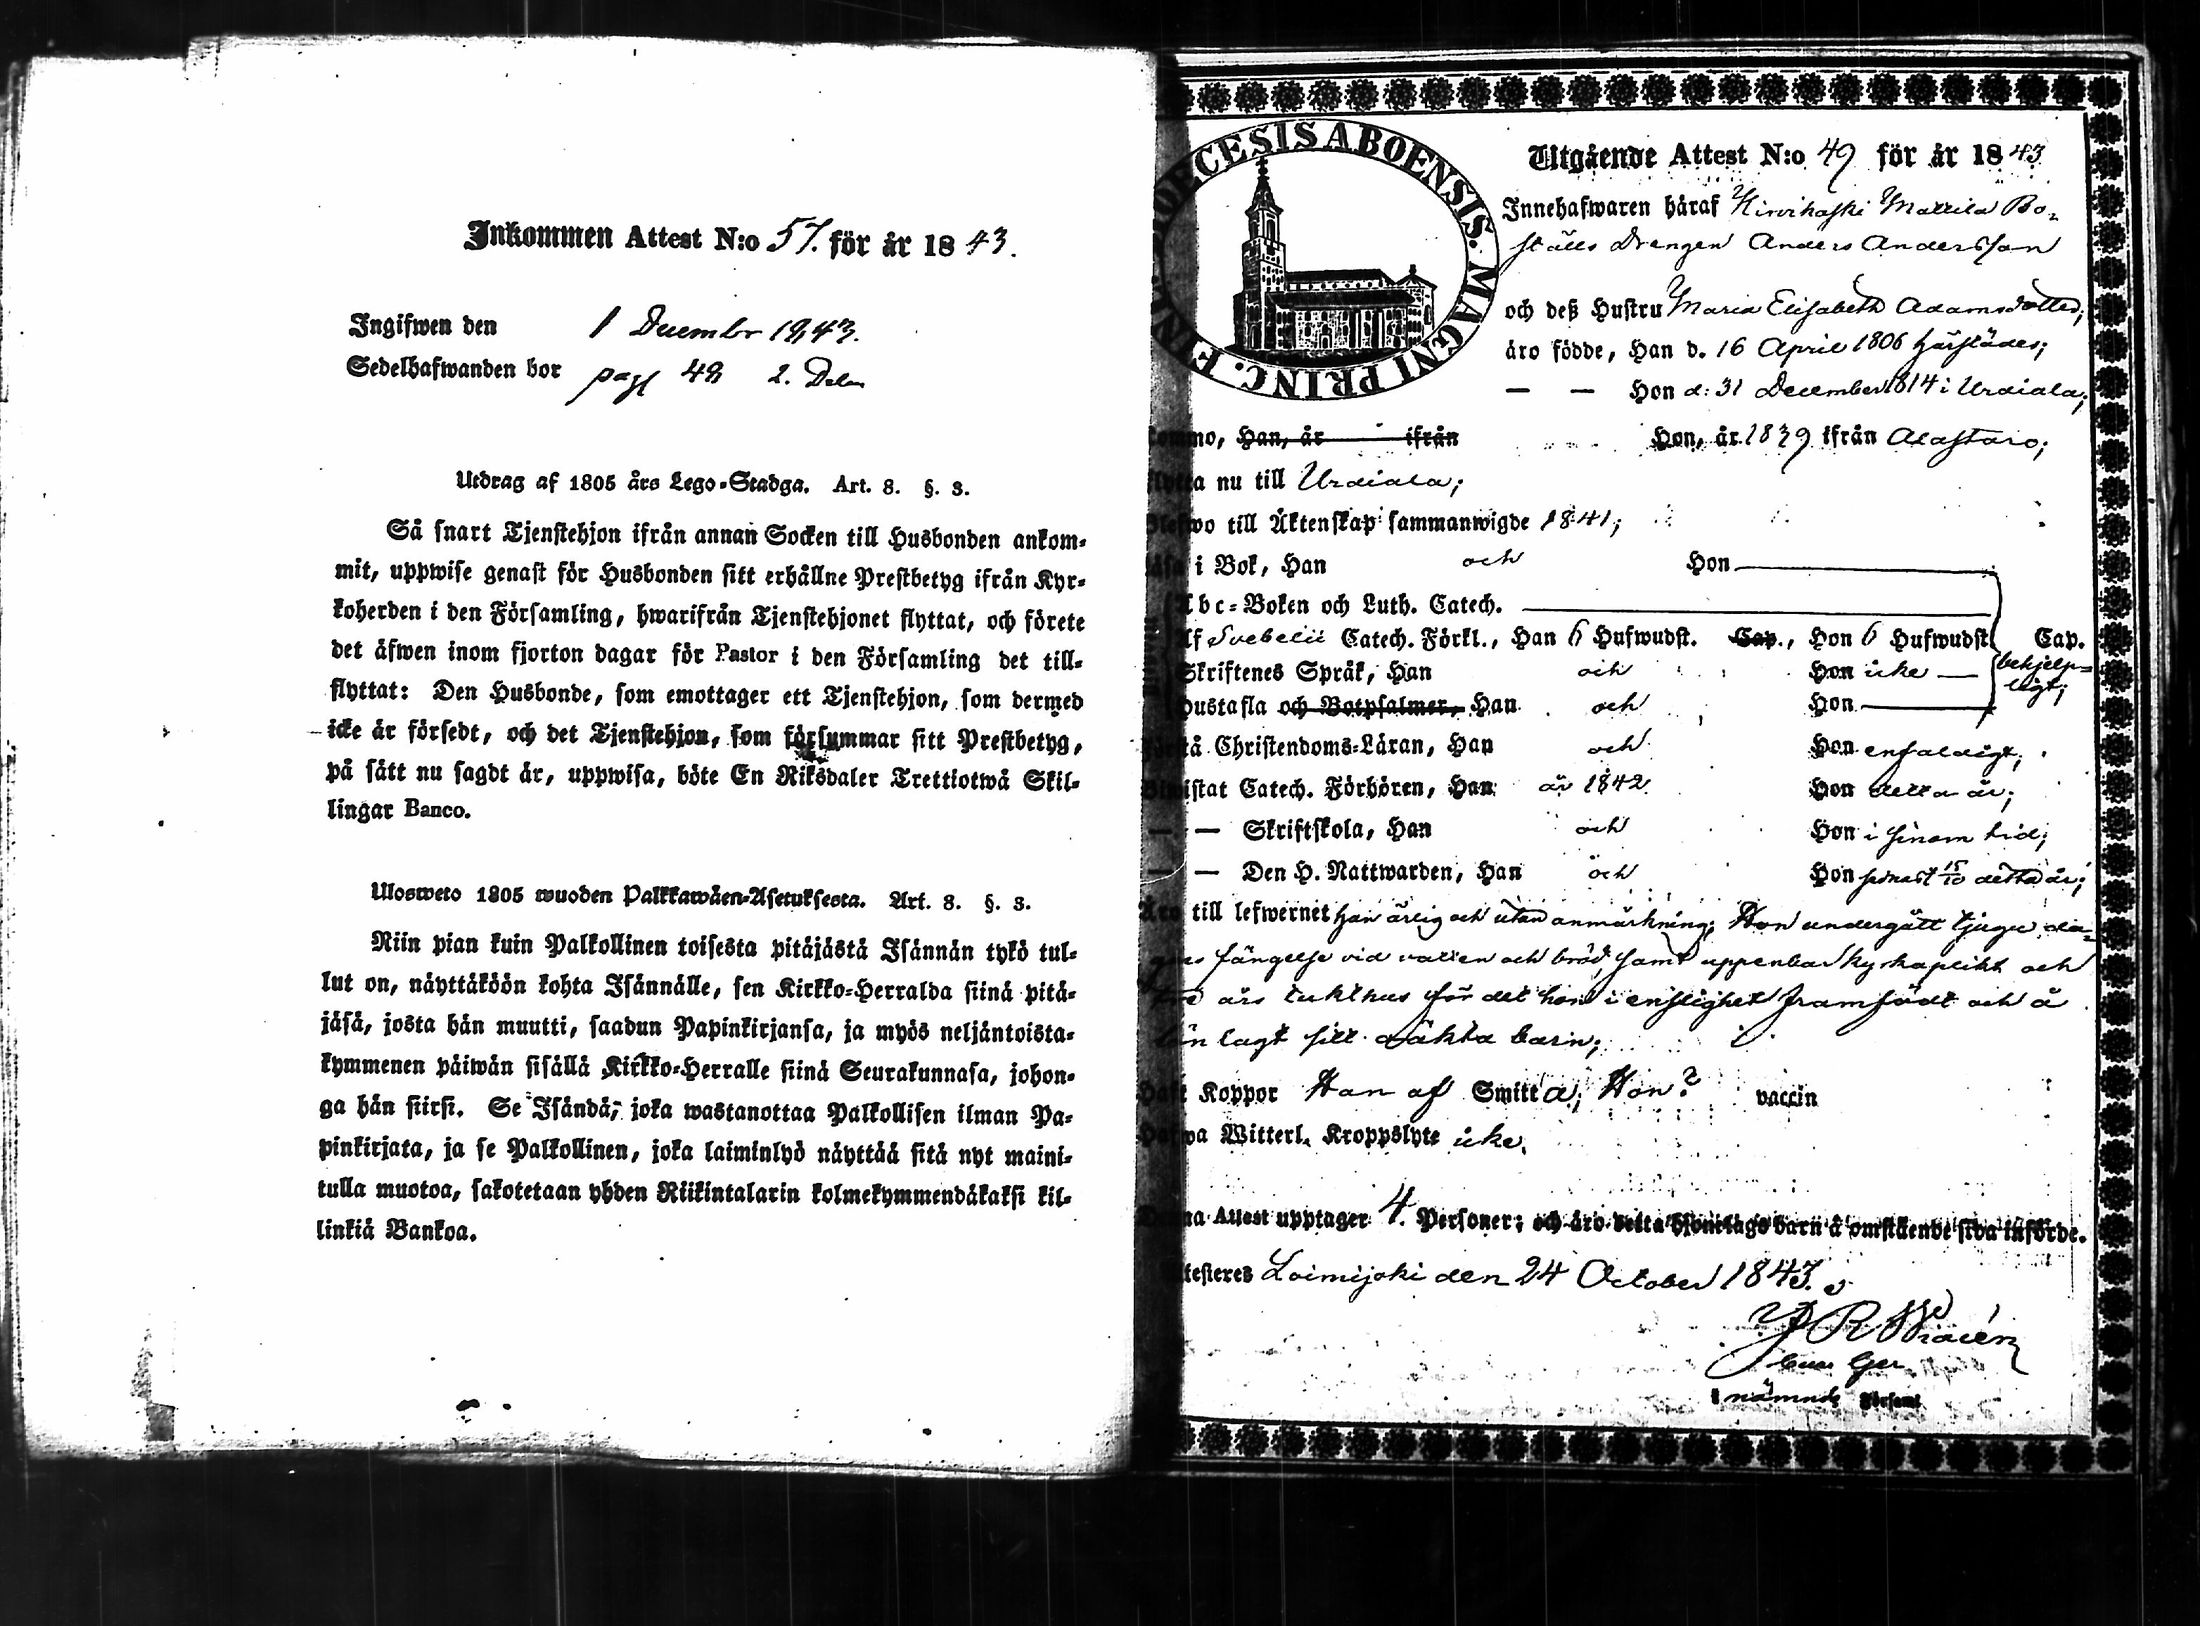 Inkommen Attest N:o 57. för år 1843.
Ingifwen den 1 December 1843.
Sedelhafwanden bor pag 48 2. Delen
Utdrag af 1805 års Lego-Stadga. Art. 8. §. 3.
Så snart Tjenstehjon ifrån annan Socken till Husbonden ankom-
mit, uppwise genast för Husbonden sitt erhållne Prestbetyg ifrån Kyr-
koherden i den Församling, hwarifrån Tjenstehjonet flyttat, och förete
det äfwen inom fjorton dagar för Pastor i den Församling det till-
flyttat: Den Husbonde, som emottager ett Tjenstehjon, som dermed
icke är försedt, och det Tjenstehjon, som försummar sitt Prestbetyg,
på sätt nu sagdt är, uppwisa, böte En Riksdaler Trettiotwå Skil-
lingar Banco.
Ulosweto 1805 wuoden Palkkawäen-Asetuksesta. Art. 8. §. 3.
Niin pian kuin Palkollinen toisesta pitäjästä Isännän tykö tul-
lut on, näyttäköön kohta Isännälle, sen Kirkko-Herralda siinä pitä-
jäsä, josta hän muutti, saadun Papinkirjansa, ja myös neljäntoista-
kymmenen päiwän sisällä Kirkko-Herralle siinä Seurakunnasa, johon-
ga hän siirsi. Se Isändä, joka wastanottaa Palkollisen ilman Pa-
pinkirjata, ja se Palkollinen, joka laiminlyö näyttää sitä nyt maini-
tulla muotoa, sakotetaan yhden Riikintalarin kolmekymmendäkaksi kil-
linkiä Bankoa.
DIOECESIS ABOENSIS. MAGNI PRINC. FINL.
Utgående Attest N:o 49 för år 1843
Innehafwaren häraf Hirvikoski Mattila Bo-
ställs Drengen Anders Andersson
och deß Hustru Maria Elisabeth Adamsdotter,
äro födde, Han d. 16 April 1806 härstädes;
— — Hon d: 31 December 1814 i Urdiala;
kommo, Han, år ifrån Hon, år 1839 ifrån Alastaro;
flytta nu till Urdiala;
Blefwo till Äktenskap sammanwigde 1841;
läsa i Bok, Han och Hon
Abc-Boken och Luth. Catech.
Af Svebelii Catech. Förkl., Han 6 Hufwudst. Cap., Hon 6 Hufwudst. Cap.
Skriftenes Språk, Han och Hon icke — behjelp-
ligt;
Hustafla och Botpsalmer, Han och Hon
Förstå Christendoms-Läran, Han och Hon enfaldigt;
Biwistat Catech. Förhören, Han år 1842 Hon detta år;
— — Skriftskola, Han och Hon i sinom tid;
— — Den H. Nattwarden, Han och Hon senast 15/10 detta år;
Äro till lefwernet han ärlig och utan anmärkning; Hon undergått tjugu da-
gars fängelse vid vatten och bröd, samt uppenbar kyrkoplikt och
tre års tukthus för det hon i enslighet framfödt och å
lön lagt sitt oäkta barn;
Haft Koppor Han af Smitta; Hon? vaccin
Hafwa Witterl. Kroppslyte icke.
Denna Attest upptager 4. Personer; och äro detta hjonelags barn å omstående sida införde.
Attesteres Loimijoki den 24 October 1843.
i nämnde Församl